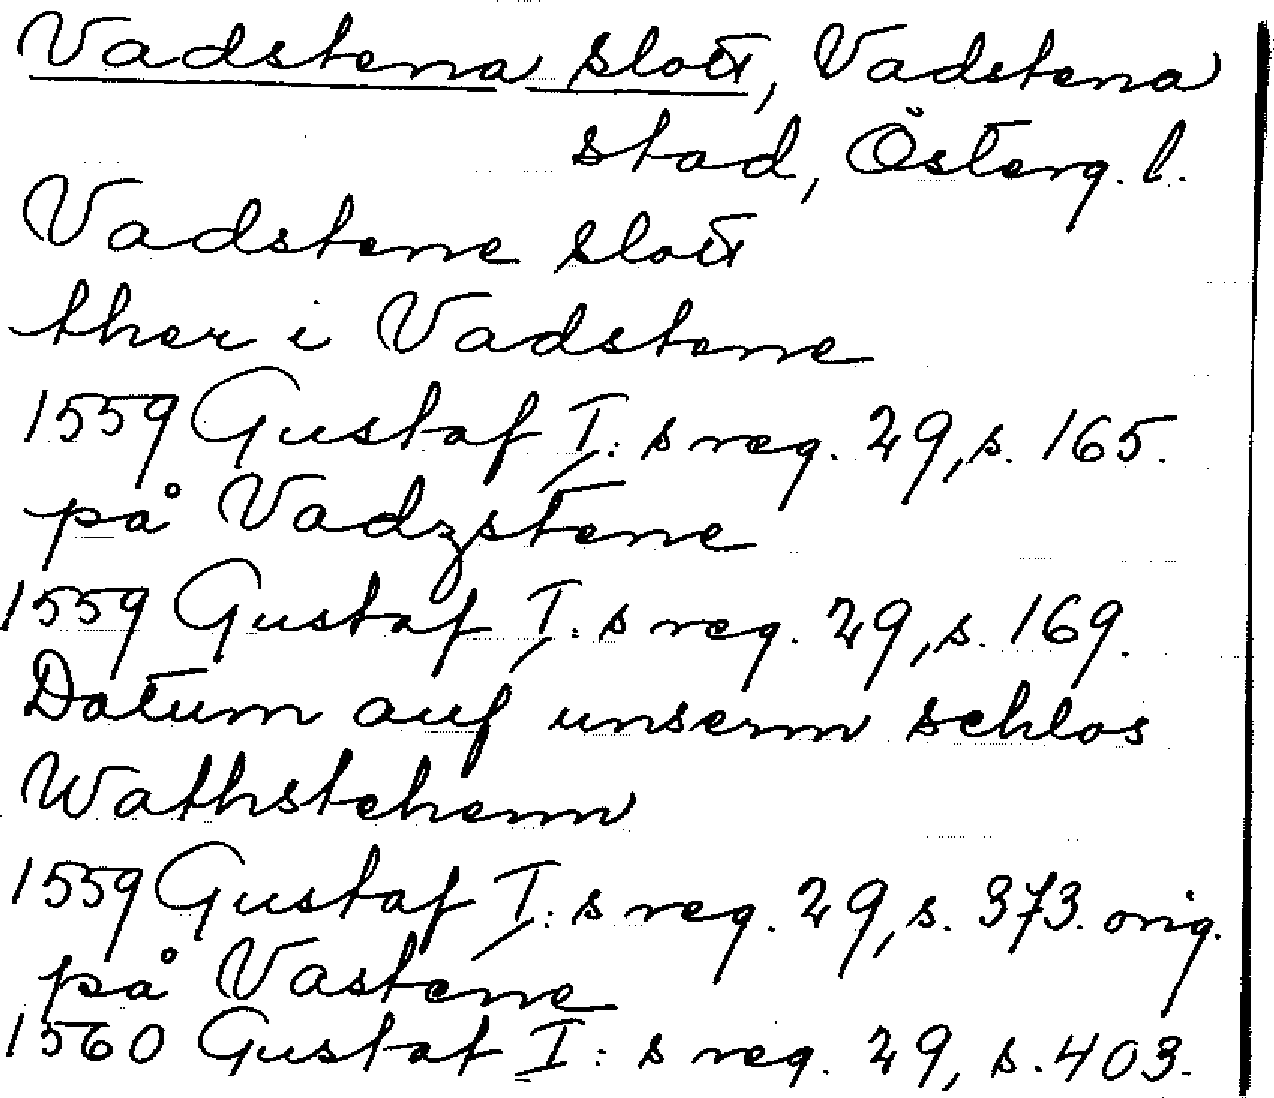 Vadstena slott, Vadstena
stad, Österg. l.
Vadstene slott
ther i Vadstene
1559 Gustaf I:s reg. 29, s. 165.
på Vadzstene
1559 Gustaf I:s reg. 29, s. 169.
Datum auf unserm schlos
Wathstehenn
1559 Gustaf I:s reg. 29, s. 373. orig.
på Vastene
1560 Gustaf I:s reg. 29, s. 403.